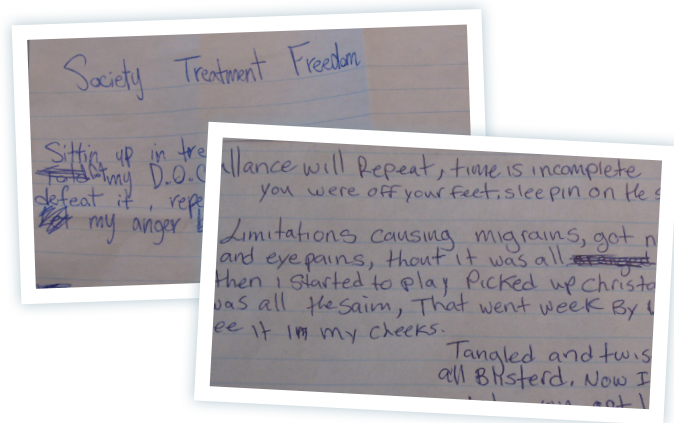 Society Treatment Freedom
Sittin up in tre
my D.O.C
defeat it, repe
my anger
llance will Repeat, time is incomplete
you were off your feet, sleepin on the s
Limitations causing migrains, got n
and eyepains, thout it was all
then I started to play Picked up Christo
was all the saim, That went week By
ee it in my cheeks.
Tangled and twis
all Blisterd. Now I